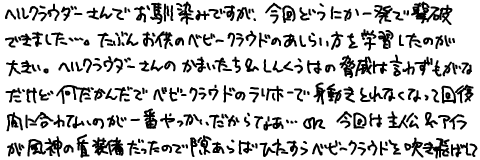 ヘルクラウダーさんでお馴染みですが、今回どうにか一発で撃破
できました…。たぶんお供のベビークラウドのあしらい方を学習したのが
大きい。ヘルクラウダーさんのかまいたち&しんくうはの脅威は言わずもがな
だけど何だかんだでベビークラウドのラリホーで身動きとれなくなって回復
間に合わないのが一番やっかいだからなあ… 今回は主人公&アイラ
が風神の盾装備だったので隙あらばひたすらベビークラウドを吹き飛ばし?